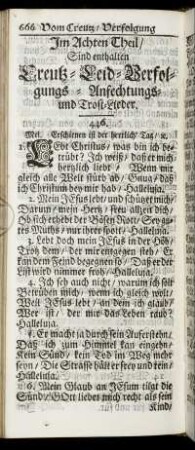 666 Vom Creutz/ Verfolgung
Im Achten Theil/
Sind enthalten
Creutz-Leid-Verfol-
gungs-Anfechtungs-
und Trost-Lieder.
446.
Mel. Erschienen ist der herrlich Tag/ ꝛc.
1. Lebt Christus/ was bin ich be-
trübt? Ich weiß/ daß er mich
hertzlich liebt/ Wenn mir
gleich alle Welt stürb ab/ Gnug/ daß
ich Christum bey mir hab/ Halleluja.
2. Mein JEsus lebt/ und schützet mich/
Darum/ mein Hertz/ freu allzeit dich/
guts Muths/ nur ihrer spott/ Halleluja.
3. Lebt doch mein JEsus in der Höh/
Trotz dem/ der mir entgegen steh/ Er
List wird nimmer froh/ Halleluja.
4. Ich seh auch nicht/ warum ich solt
Betrüben mich/ wenn ich gleich wolt/
Weil JEsus lebt/ an dem ich glaub/
Wer ist/ der mir das Leben raub?
Halleluja.
5. Er macht ja durch sein Auferstehn/
Daß ich zum Himmel kan eingehn/
Kein Sünd/ kein Tod im Weg mehr
Halleluja.
6. Mein Glaub an JEsum tilgt die
Sünd/ GOtt liebet mich recht als sein
Kind/